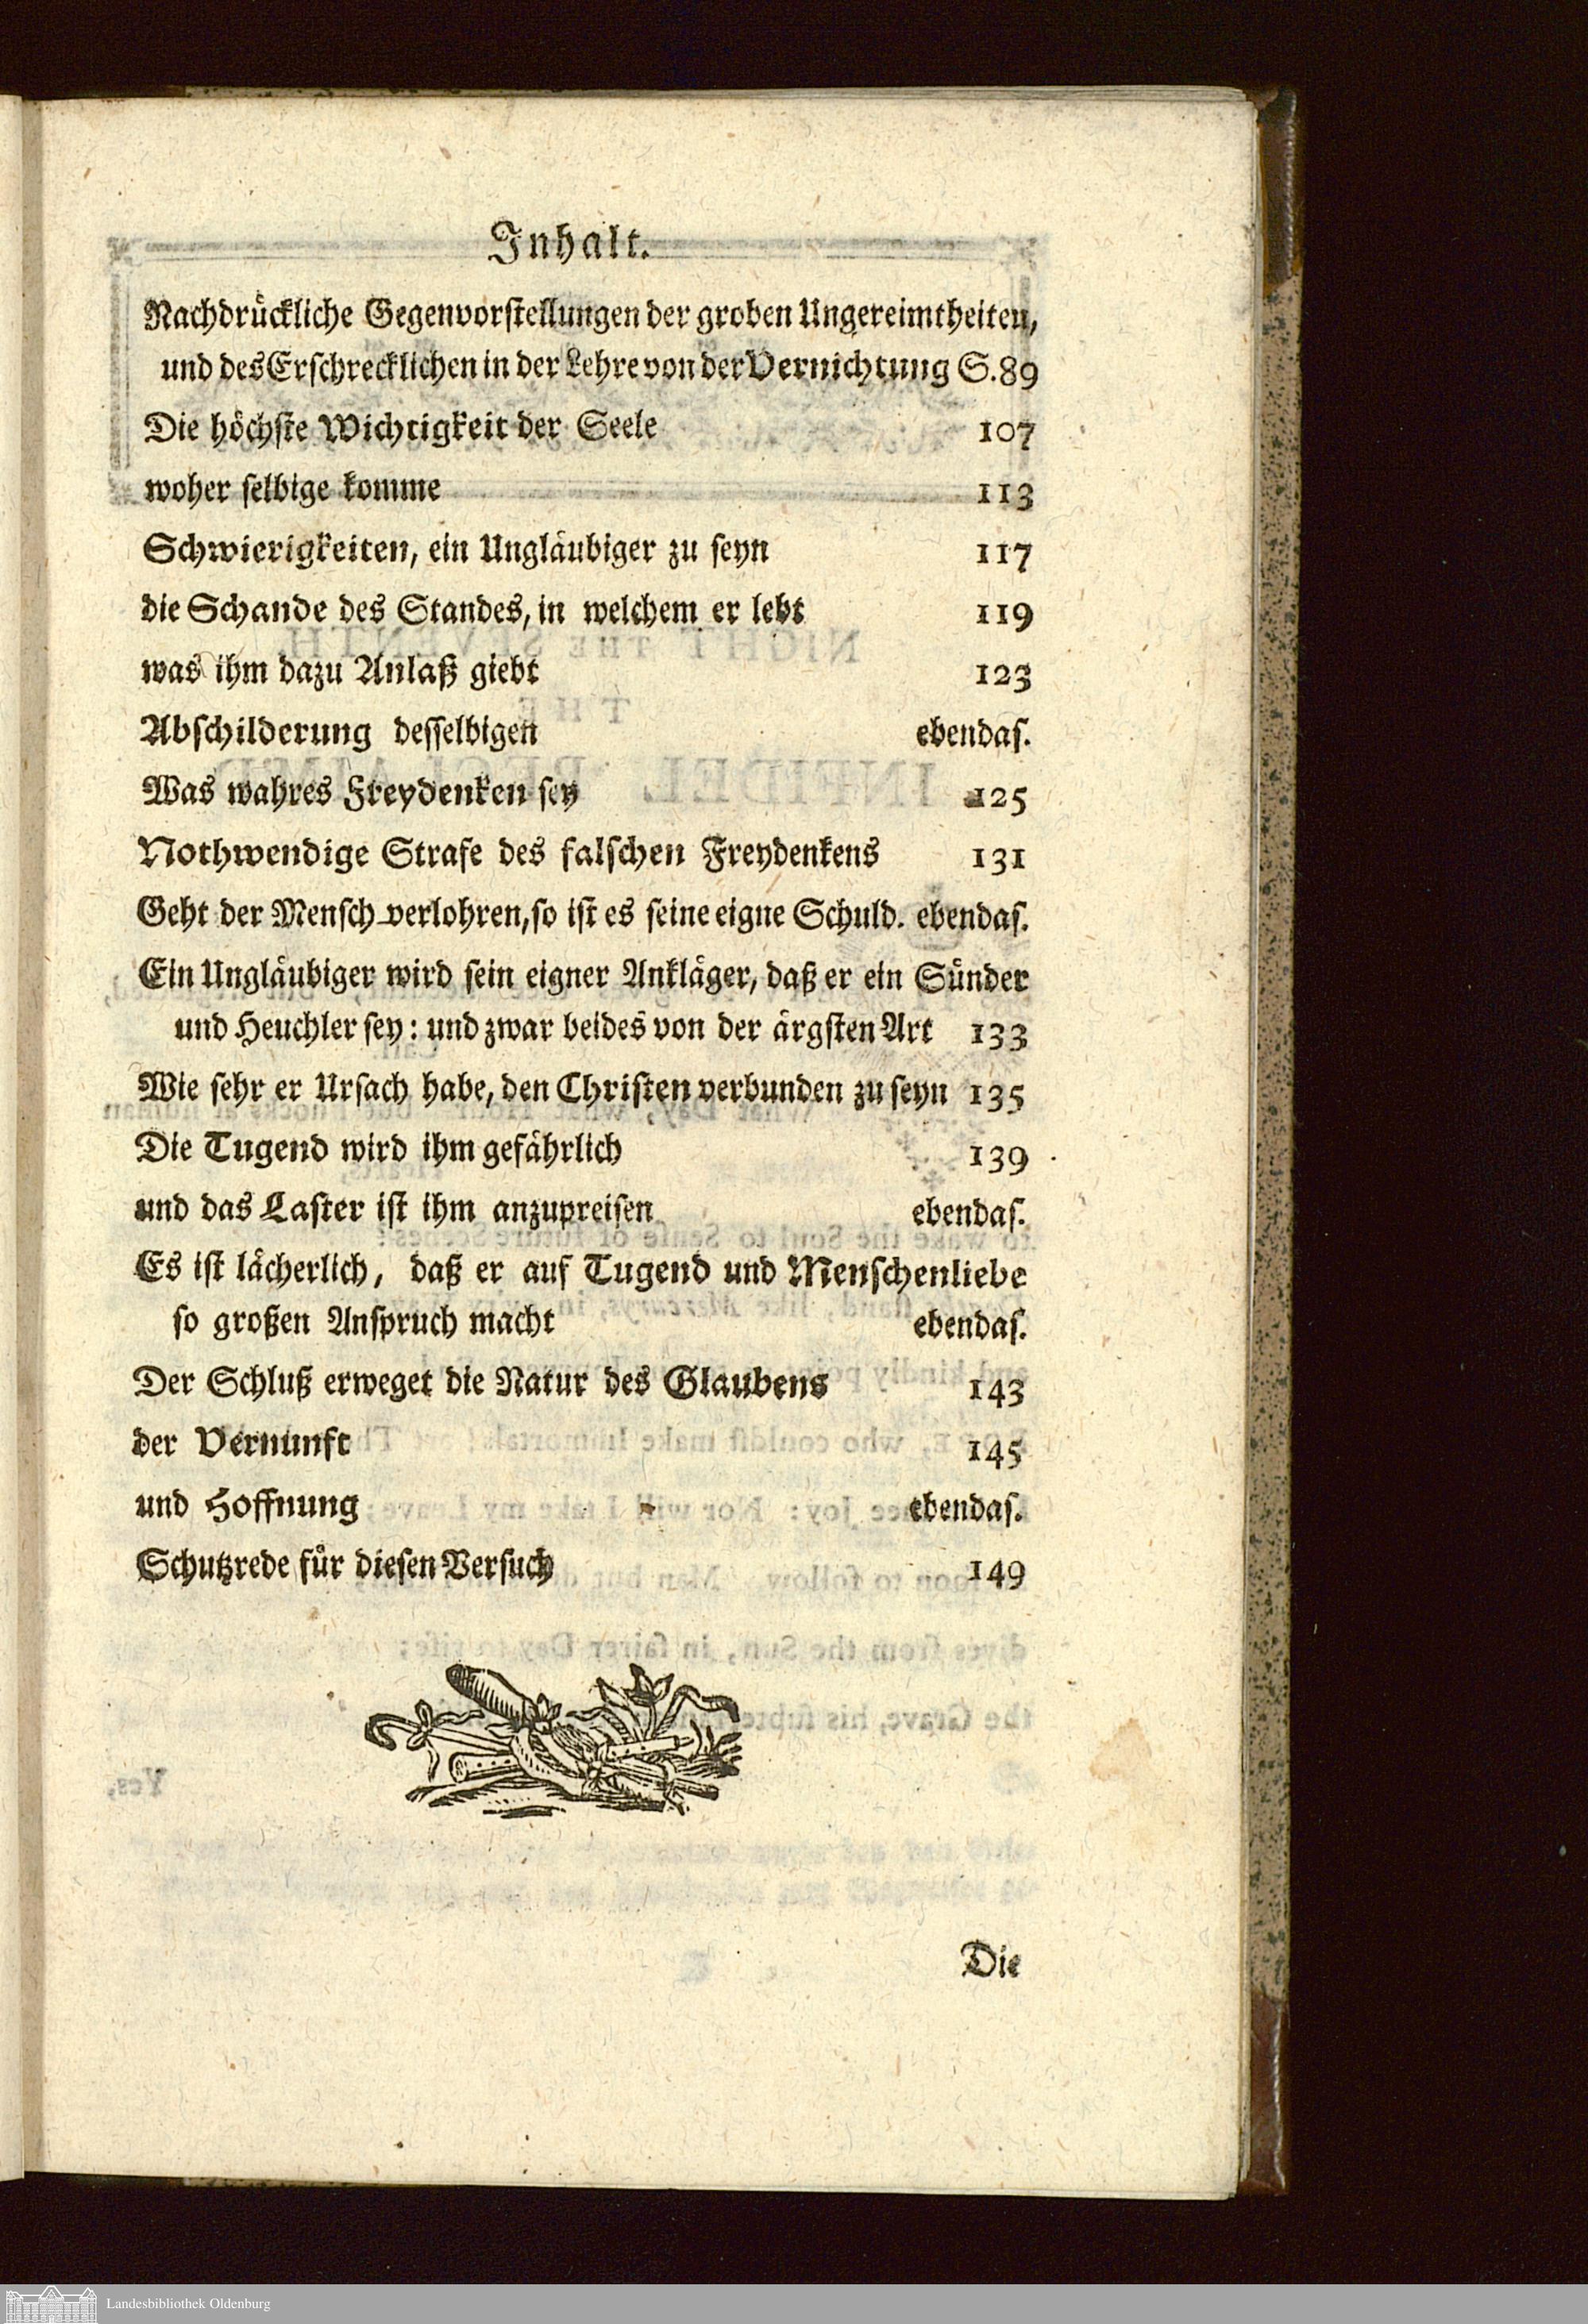 Inhalt.
Nachdrückliche Gegenvorstellungen der groben Ungereimtheiten,
und des Erschrecklichen in der Lehre von der Vernichtung S. 89
Die höchste Wichtigkeit der Seele 107
woher selbige komme 113
Schwierigkeiten, ein Ungläubiger zu seyn 117
die Schande des Standes, in welchem er lebt 119
was ihm dazu Anlaß giebt 123
Abschilderung desselbigen ebendas.
Was wahres Freydenken sey 125
Nothwendige Strafe des falschen Freydenkens 131
Geht der Mensch verlohren, so ist es seine eigne Schuld. ebendas.
Ein Ungläubiger wird sein eigner Ankläger, daß er ein Sünder
und Heuchler sey: und zwar beides von der ärgsten Art 133
Wie sehr er Ursach habe, den Christen verbunden zu seyn 135
Die Tugend wird ihm gefährlich 139
und das Laster ist ihm anzupreisen ebendas.
Es ist lächerlich, daß er auf Tugend und Menschenliebe
so großen Anspruch macht ebendas.
Der Schluß erweget die Natur des Glaubens 143
der Vernunft 145
und Hoffnung ebendas.
Schutzrede für diesen Versuch 149
Die
Landesbibliothek Oldenburg